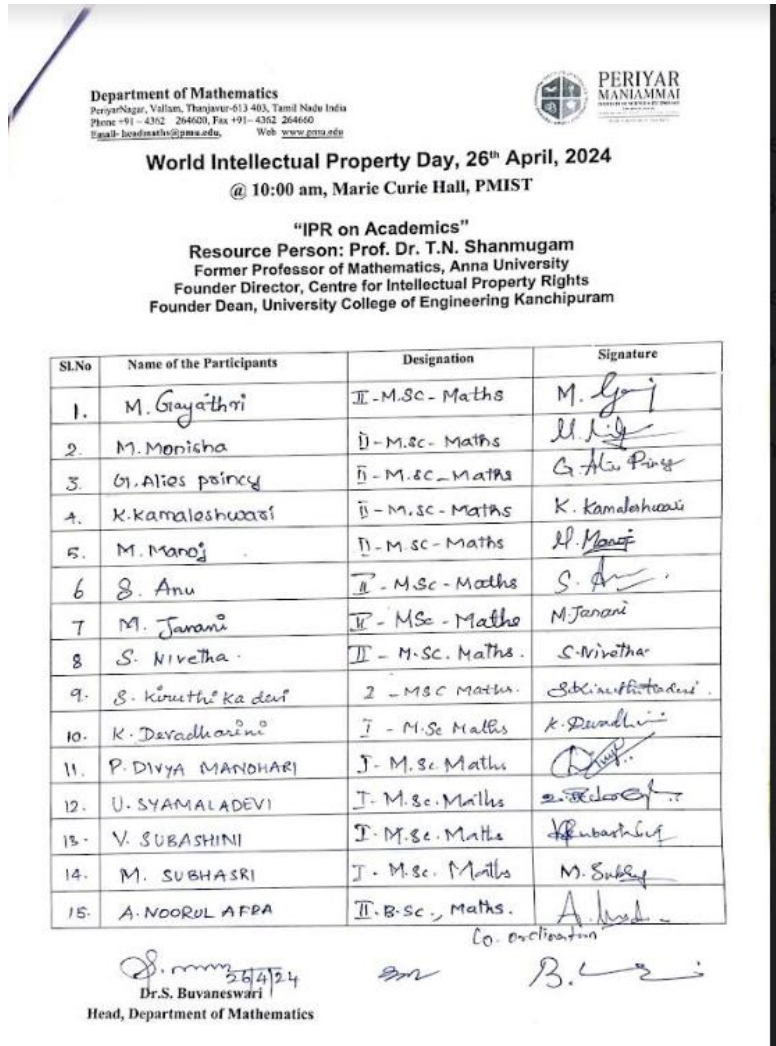 Department of Mathematics
PeriyarNagar, Vallam, Thanjavur-613 403, Tamil Nadu India
Phone +91 – 4362 264600, Fax +91– 4362 264660
Email- headmaths@pmu.edu, Web www.pmu.edu
PERIYAR
MANIAMMAI
World Intellectual Property Day, 26th April, 2024
@ 10:00 am, Marie Curie Hall, PMIST
"IPR on Academics"
Resource Person: Prof. Dr. T.N. Shanmugam
Former Professor of Mathematics, Anna University
Founder Director, Centre for Intellectual Property Rights
Founder Dean, University College of Engineering Kanchipuram
Sl.No Name of the Participants Designation Signature
1. M. Gayathri II-M.SC- Maths M.
2. M. Monisha II-M.SC- Maths
3. G. Alies princy II-M.SC-Maths G. Alies Princy
4. K. Kamaleshwari II-M.SC-Maths K. Kamaleshwari
5. M. Manoj II-M.SC-Maths M. Manoj
6 S. Anu II-M.Sc-Maths S. An
7 M. Janani II - MSc - Maths M. Janani
8 S. Nivetha. II - M.SC. Maths. S. Nivetha.
9. S. Kiruthika devi I - MSC Maths. S. Kiruthikadevi.
10. K. Devadharini I - M.Sc Maths K. Devadharini
11. P. DIVYA MANOHARI I- M.Sc. Maths
12. U. SYAMALADEVI I- M.Sc. Maths
13. V. SUBASHINI I. M.Sc. Maths
14. M. SUBHASRI I. M.Sc. Maths M.
15. A. NOORUL AFDA II. B.Sc., Maths. A.
Co. ordinator
26/4/24
Dr.S. Buvaneswari
Head, Department of Mathematics